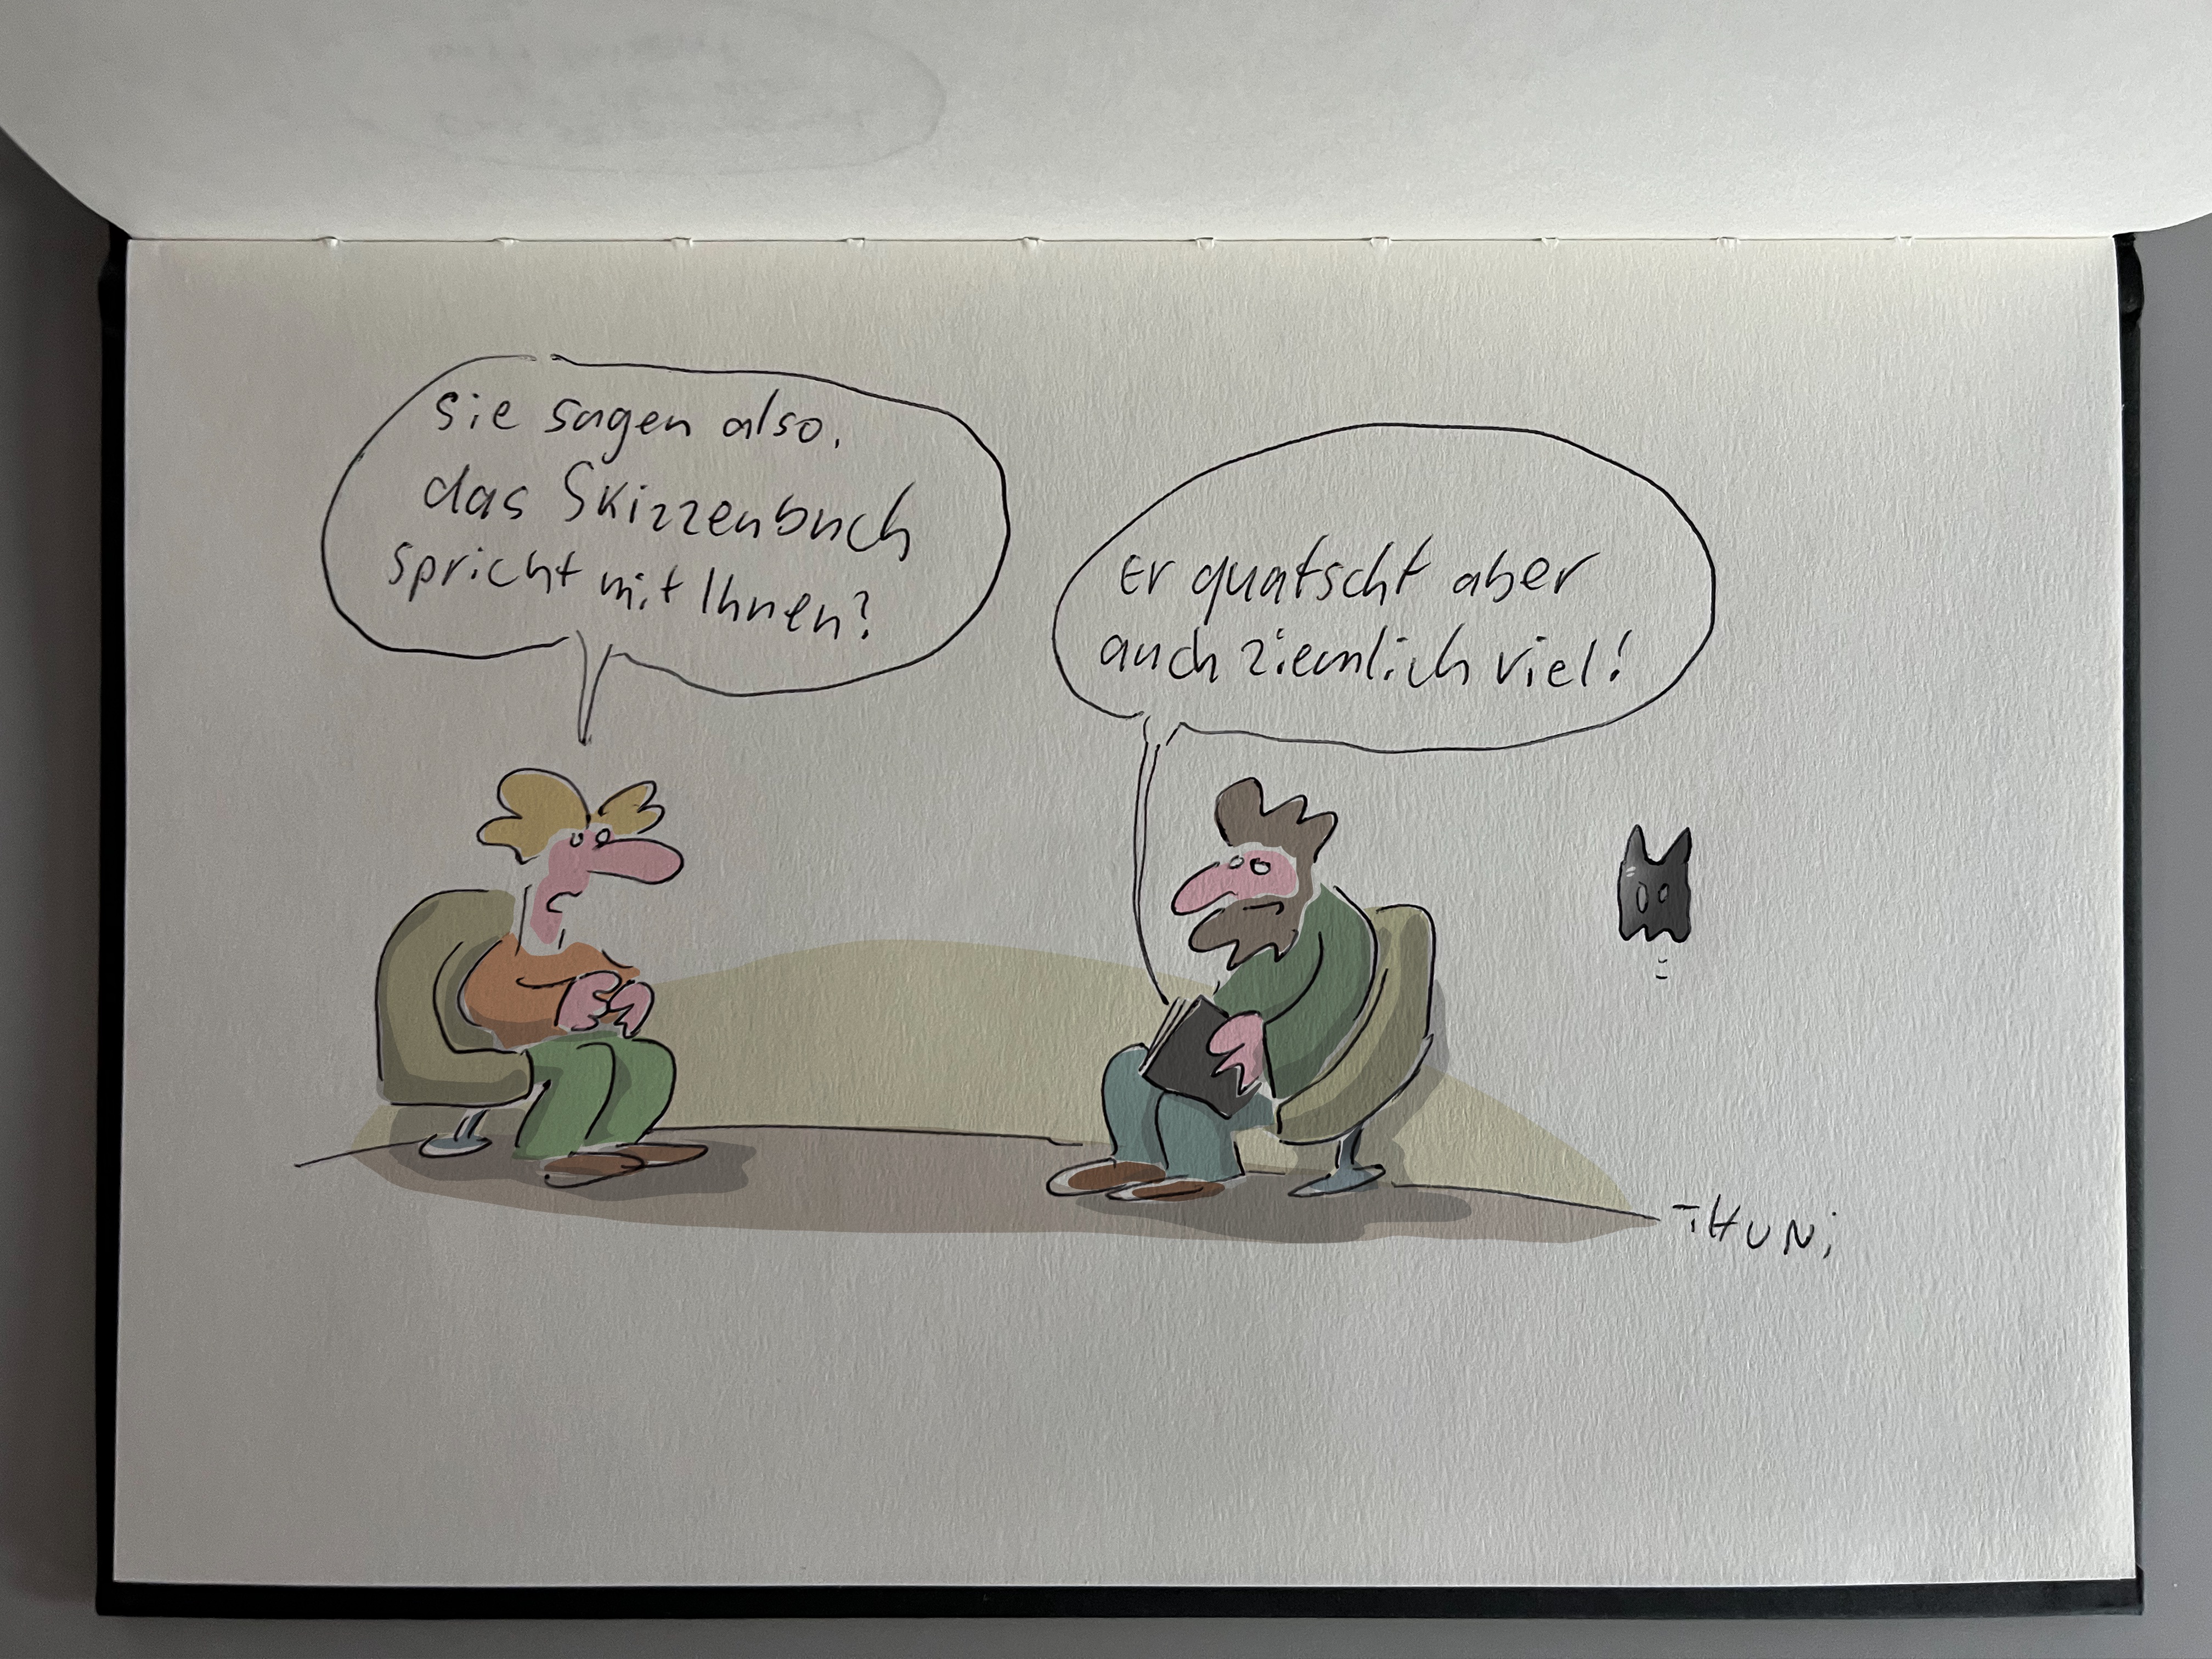 Sie sagen also,
das Skizzenbuch
spricht mit Ihnen?
Er quatscht aber
auch ziemlich viel!
THUNi